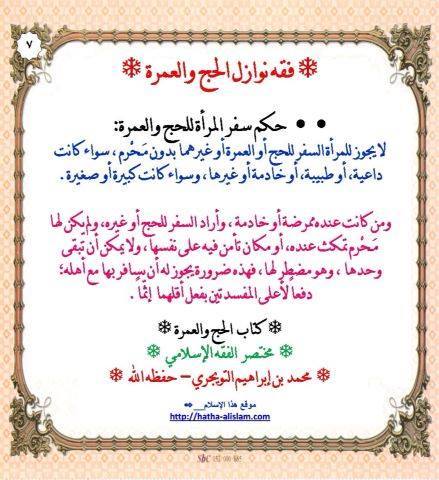 ٧
❄ فقه نوازل الحج والعمرة ❄
● ● حكم سفر المرأة للحج والعمرة:
لا يجوز للمرأة السفر للحج أو العمرة أو غيرهما بدون مَحْرم، سواء كانت
داعية، أو طبيبة، أو خادمة أو غيرها، وسواء كانت كبيرة أو صغيرة.
ومن كانت عنده ممرضة أو خادمة، وأراد السفر للحج أو غيره، ولم يكن لها
مَحْرم تمكث عنده، أو مكان تأمن فيه على نفسها، ولا يمكن أن تبقى
وحدها، وهو مضطر لها، فهذه ضرورة يجوز له أن يسافر بها مع أهله؛
دفعاً لأعلى المفسدتين بفعل أقلهما إثماً.
❄ كتاب الحج والعمرة ❄
❄ مختصر الفقه الإسلامي ❄
❄ محمد بن إبراهيم التويجري – حفظه الله ❄
موقع هذا الإسلام__➡
http://hatha-alislam.com